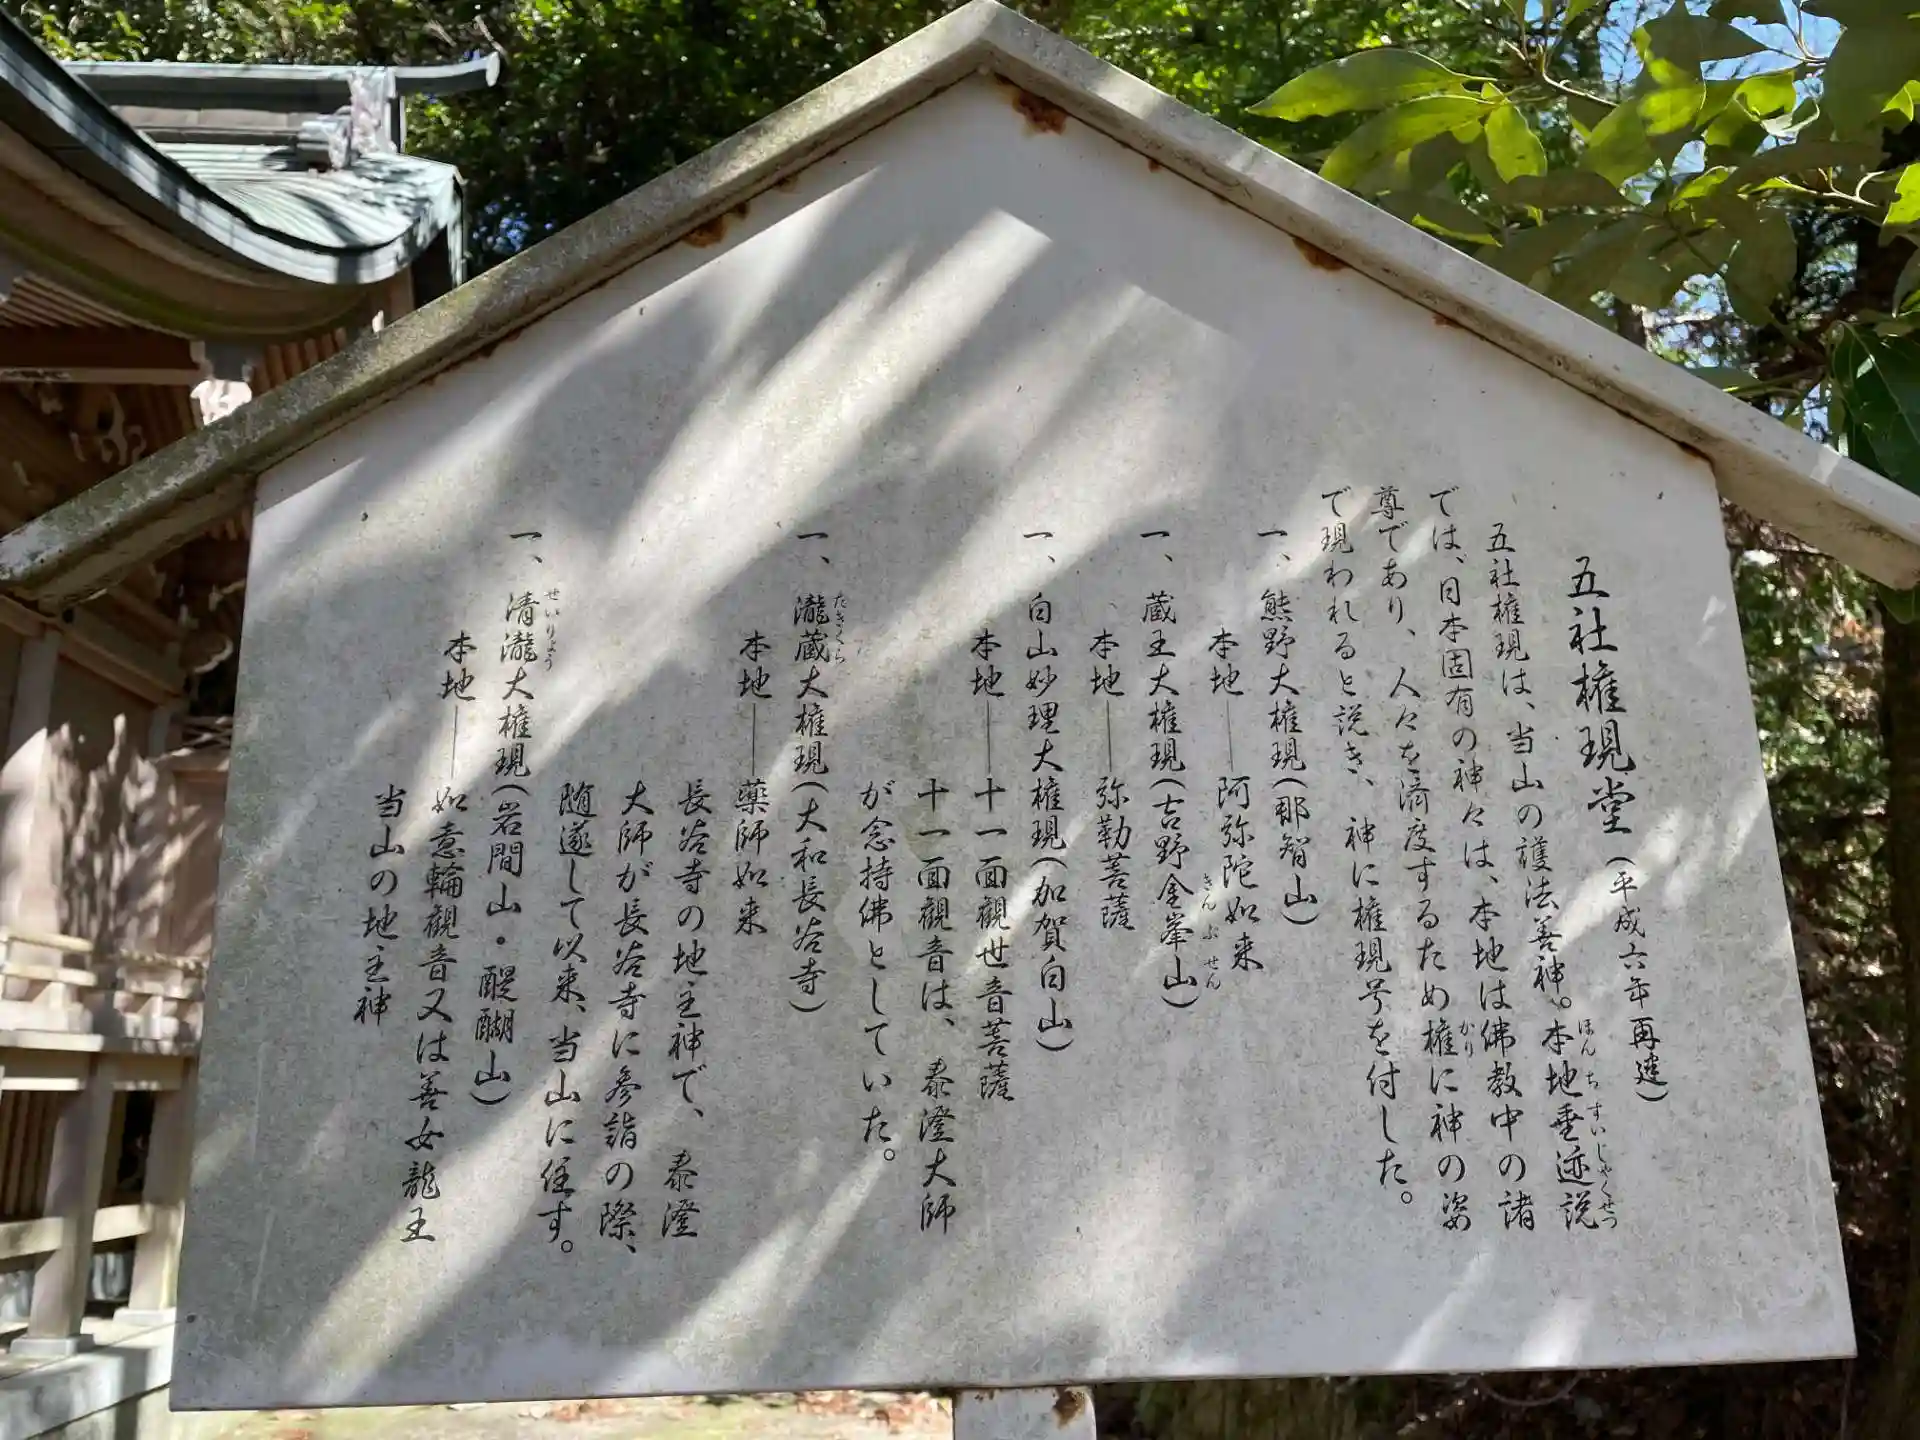 五社権現堂（平成六年再建）
五社権現は、当山の護法善神。本地垂迹説
ほんちすいじゃくせつ
では、日本固有の神々は、本地は佛教中の諸
尊であり、人々を済度するため権に神の姿
かり
で現われると説き、神に権現号を付した。
一、熊野大権現（那智山）
本地――阿弥陀如来
一、蔵王大権現（吉野金峯山）
きんぷせん
本地――弥勒菩薩
一、白山妙理大権現（加賀白山）
本地――十一面観世音菩薩
十一面観音は、泰澄大師
が念持佛としていた。
一、瀧蔵大権現（大和長谷寺）
たきくら
本地――薬師如来
長谷寺の地主神で、泰澄
大師が長谷寺に参詣の際、
随遂して以来、当山に住す。
一、清瀧大権現（岩間山・醍醐山）
せいりょう
本地――如意輪観音又は善女龍王
当山の地主神